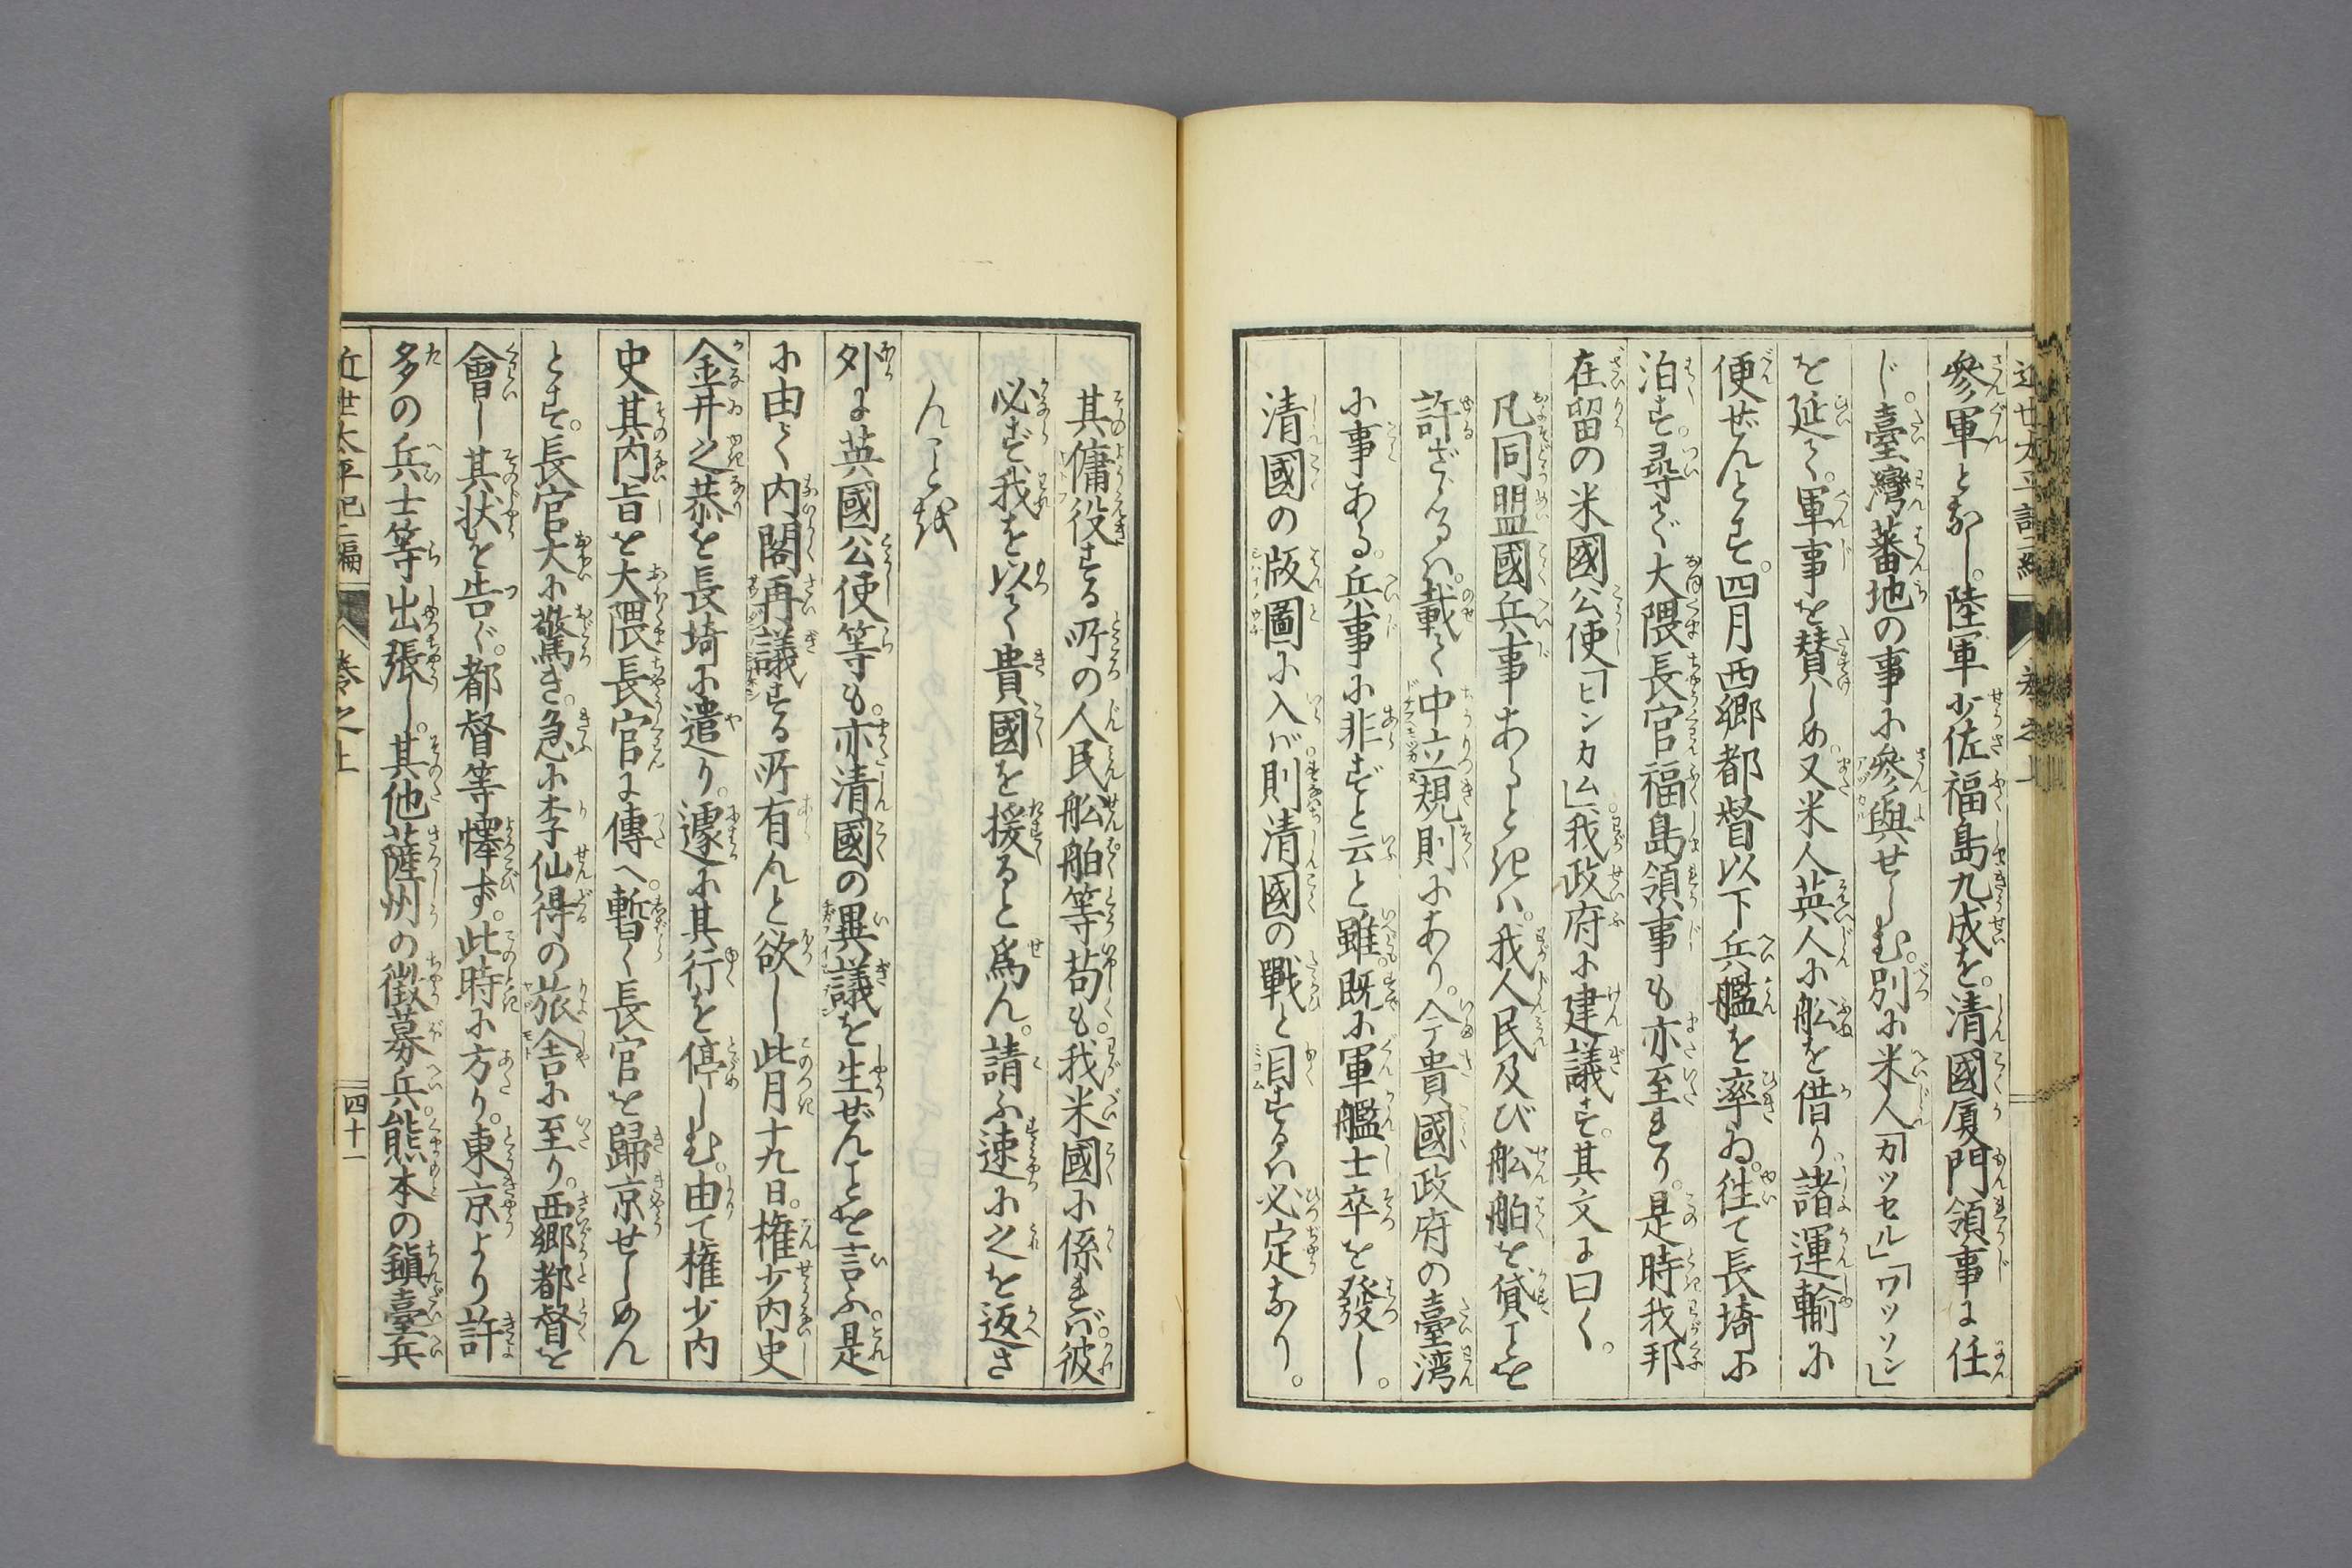 近世太平記二編
參軍となし。陸軍少佐福島九成を。清國厦門領事に任
じ。臺灣蕃地の事に參與せしむ。別に米人「カツセル」「ワツソン」
を延て。軍事を賛しめ。又米人英人に船を借り。諸運輸に
便ぜんとす。四月西郷都督以下兵艦を率ゐ。徃て長埼に
泊す。尋で大隈長官福島領事も亦至れり。是時我邦
在留の米國公使「ヒンカム」。我政府に建議す。其文に曰く。
凡同盟國兵事あるときハ。我人民及び舩舶を貸ことを
許ざるハ。載て中立規則にあり。今貴國政府の臺湾
に事ある。兵事に非ずと云と雖。既に軍艦士卒を發し。
清國の版圖に入バ。則清國の戰と目するハ必定なり。
其傭役する所の人民舩舶等苟も。我米國に係れバ。彼
必ず我を以て貴國を援ると爲ん。請ふ速に之を返さ
んことを
外に英國公使等も。亦清國の異議を生ぜんことを言ふ。是
に由て内閣再議する所有んと欲し此月十九日。権少内史
金井之恭を長埼に遣り。遽に其行を停しむ。由て権少内
史其内旨を大隈長官に傳へ。暫く長官を歸京せしめん
とす。長官大に驚き。急に李仙得の旅舎に至り。西郷都督を
會し其状を告ぐ。都督等懌ず。此時に方り。東京より許
多の兵士等出張し。其他薩州の徴募兵。熊本の鎮臺兵
近世太平記二編 巻之上 四十一